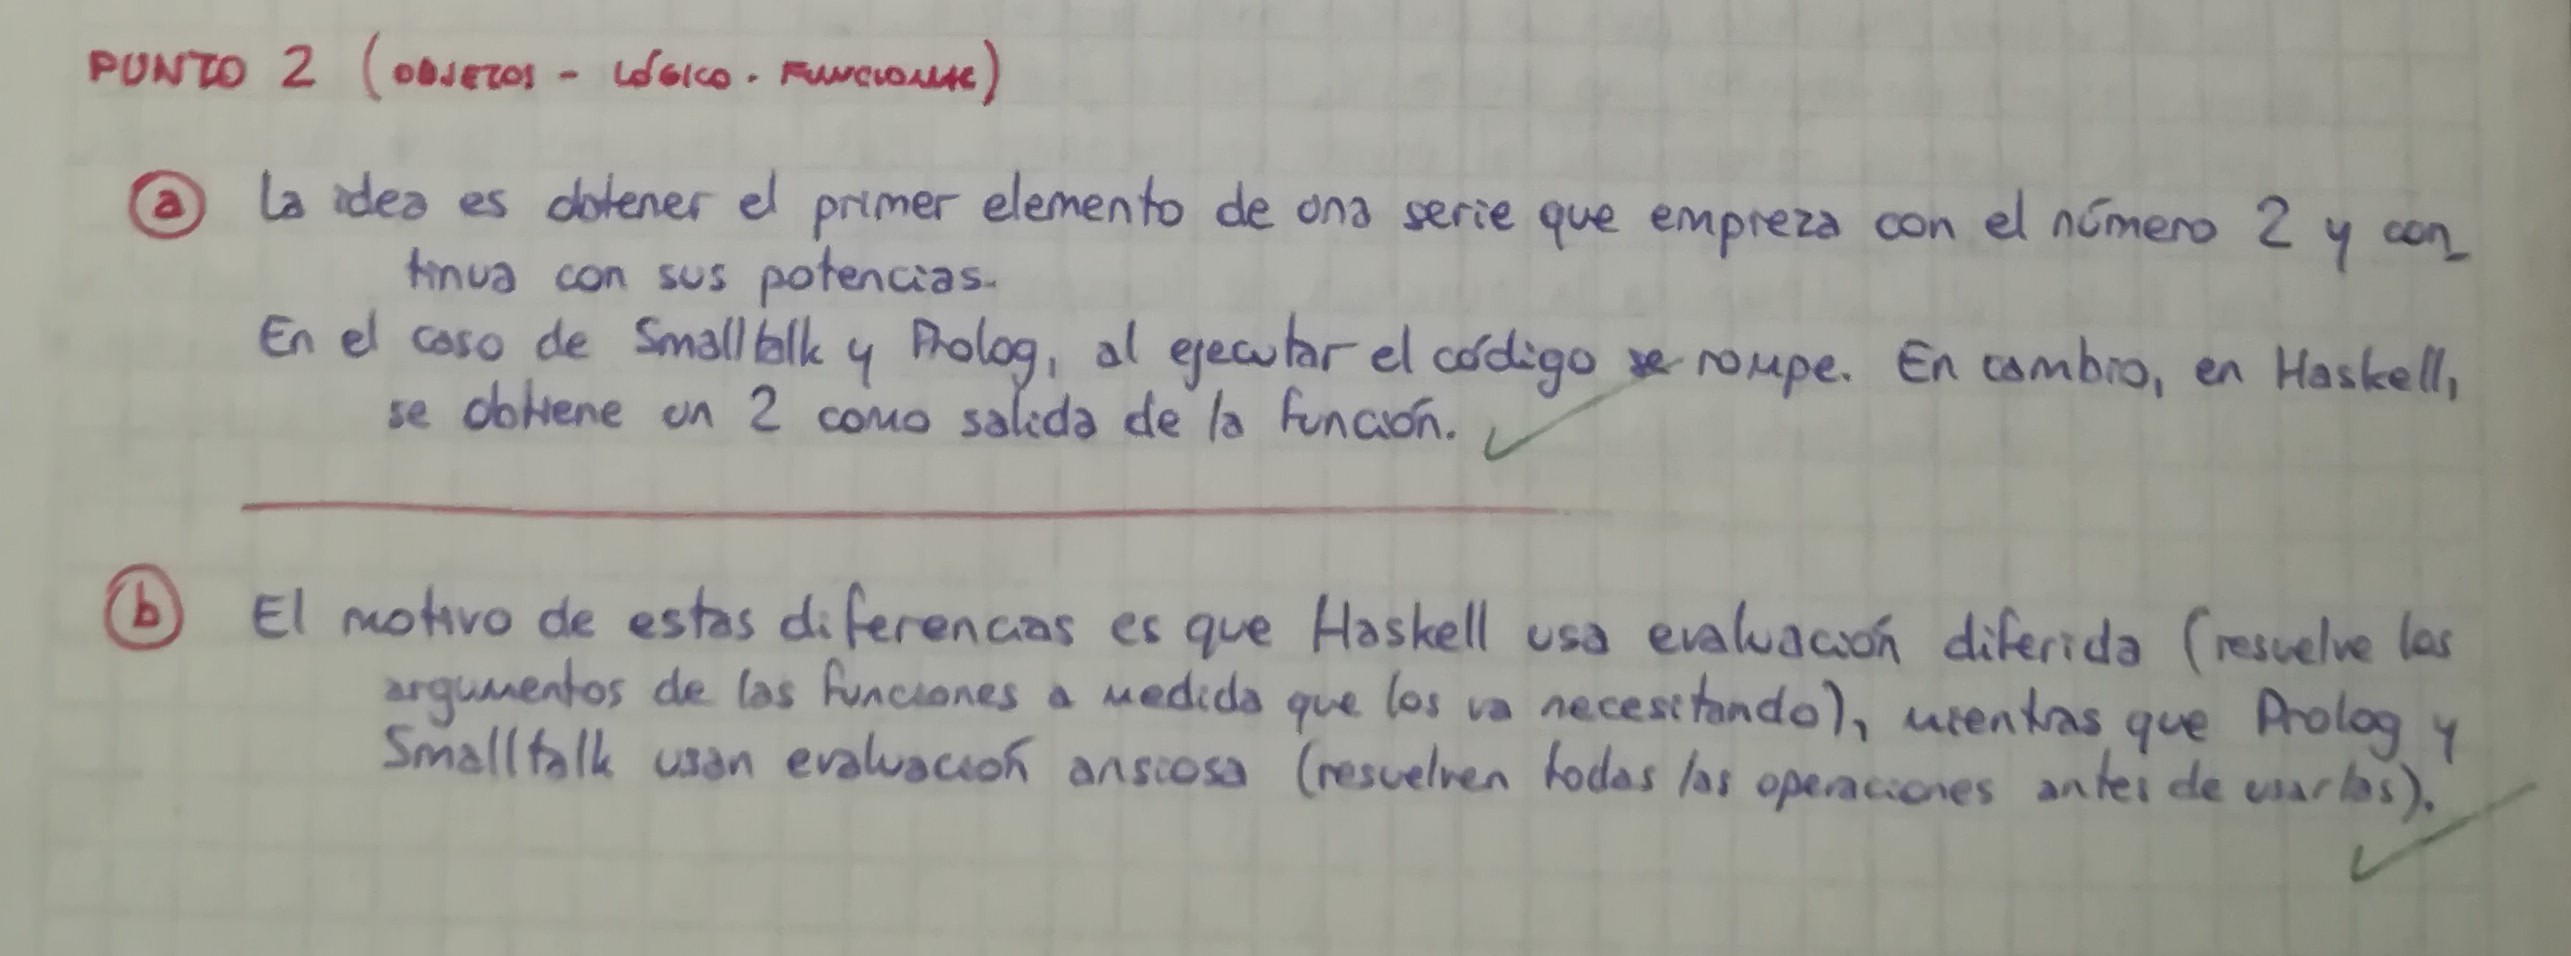 PUNTO 2 (OBJETOS - LÓGICO - FUNCIONAL)
a La idea es obtener el primer elemento de una serie que empieza con el número 2 y con_
tinua con sus potencias.
En el caso de Smalltalk y Prolog, al ejecutar el código se rompe. En cambio, en Haskell,
se obtiene un 2 como salida de la función.
b El motivo de estas diferencias es que Haskell usa evaluación diferida (resuelve los
argumentos de las funciones a medida que los va necesitando), mientras que Prolog y
Smalltalk usan evaluación ansiosa (resuelven todas las operaciones antes de usarlas).